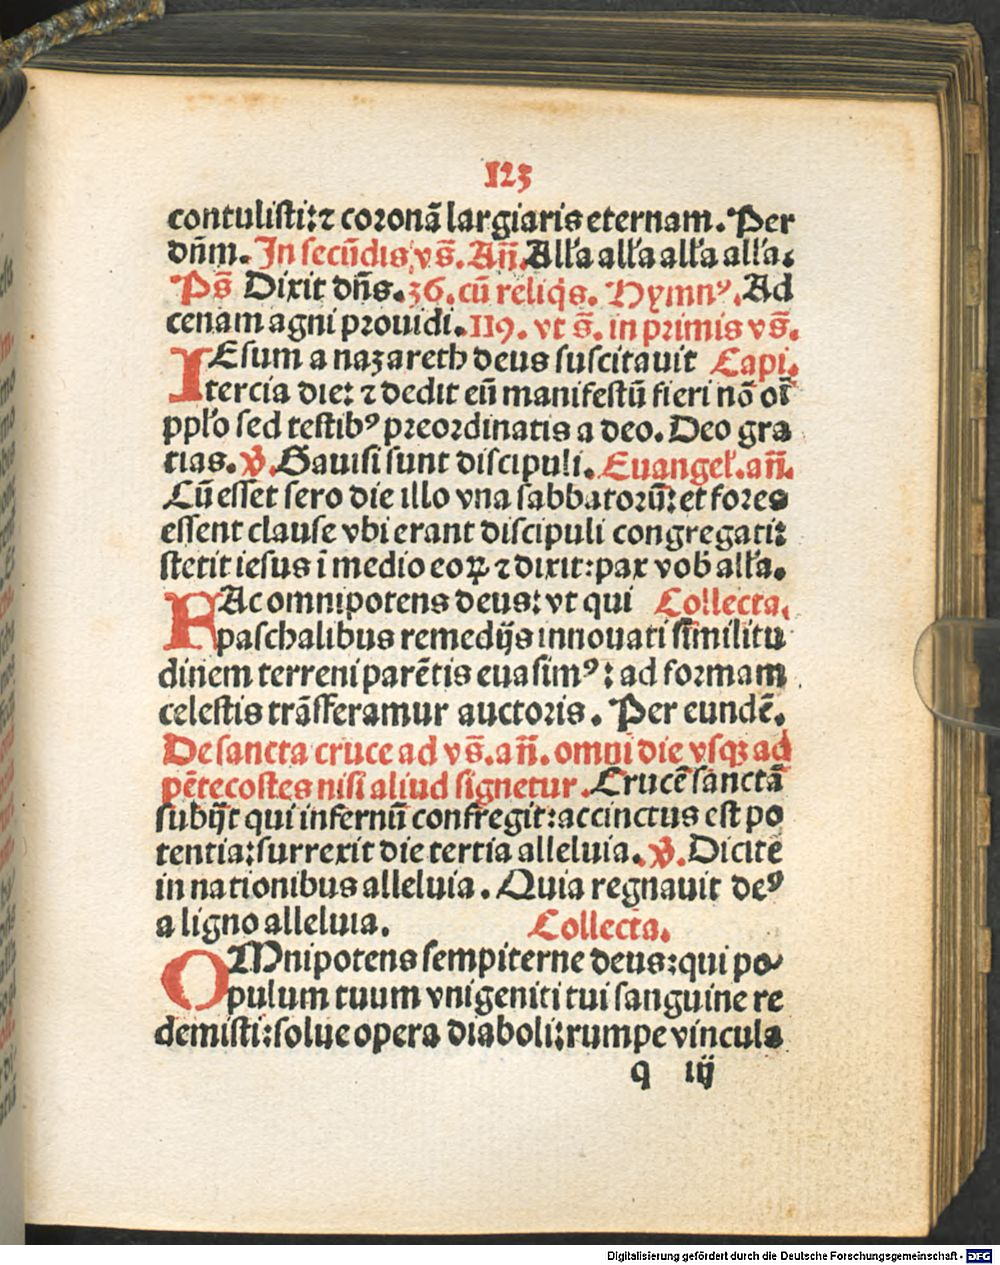 123
contulisti:⁊ coꝛonā largiaris eternam. Per
dn̄m. In secūdis vs̄. An̄. Alľa alľa alľa alľa.
Ps̄ Dixit dn̄s. 36. cū reliq̄s. Hymnꝰ. Ad
cenam agni pꝛouidi. 119. vt s̄. in primis vs̄.
IEsum a nazareth deus suscitauit Capi.
tercia die: ⁊ dedit eū manifestū fieri nō oī
ppľo sed testibꝰ pꝛeoꝛdinatis a deo. Deo gra
tias. ℣. Gauisi sunt discipuli. Euangeľ. an̄.
Cū esset sero die illo vna sabbatoꝛū: et foꝛes
essent clause vbi erant discipuli congregati:
stetit iesus ī medio eoꝝ ⁊ dixit: pax vob̄ alľa.
FAc omnipotens deus: vt qui Collecta.
paschalibus remedijs innouati similitu
dinem terreni parētis euasimꝰ: ad foꝛmam
celestis trāsferamur auctoꝛis. Per eundē.
De sancta cruce ad vs̄. an̄. omni die vsqꝫ ad
pētecostes nisi aliud signetur. Crucē sanctā
subijt qui infernū confregit: accinctus est po
tentia: surrexit die tertia alleluia. ℣. Dicite
in nationibus alleluia. Quia regnauit deꝰ
a ligno alleluia. Collecta.
OMnipotens sempiterne deus: qui po
pulum tuum vnigeniti tui sanguine re
demisti: solue opera diaboli: rumpe vincula
q iij
Digitalisierung gefördert durch die Deutsche Forschungsgemeinschaft - DFG